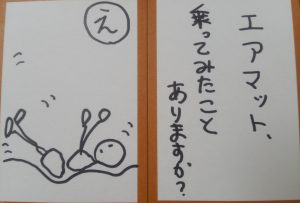 え
エアマット、
乗ってみたこと
ありますか?